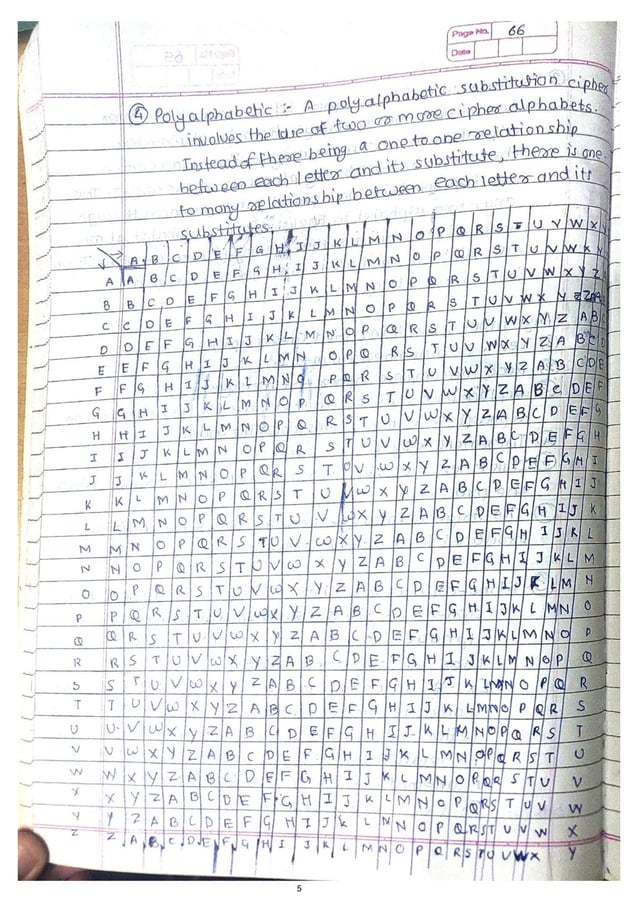 Page No. 66
Date
④ Polyalphabetic :- A polyalphabetic substitution cipher
involves the use of two or more cipher alphabets.
Instead of there being a one to one relationship
between each letter and its substitute, there is one-
to many relationship between each letter and its
substitutes.
A B C D E F G H I J K L M N O P Q R S T U V W X Y
A A B C D E F G H I J K L M N O P Q R S T U V W X Y
B B C D E F G H I J K L M N O P Q R S T U V W X Y Z
C C D E F G H I J K L M N O P Q R S T U V W X Y Z
D D E F G H I J K L M N O P Q R S T U V W X Y Z A B C
E E F G H I J K L M N O P Q R S T U V W X Y Z A B C D
F F G H I J K L M N O P Q R S T U V W X Y Z A B C D E
G G H I J K L M N O P Q R S T U V W X Y Z A B C D E F
H H I J K L M N O P Q R S T U V W X Y Z A B C D E F G
I I J K L M N O P Q R S T U V W X Y Z A B C D E F G H
J J K L M N O P Q R S T U V W X Y Z A B C D E F G H I
K K L M N O P Q R S T U V W X Y Z A B C D E F G H I J
L L M N O P Q R S T U V W X Y Z A B C D E F G H I J K
M M N O P Q R S T U V W X Y Z A B C D E F G H I J K L
N N O P Q R S T U V W X Y Z A B C D E F G H I J K L M
O O P Q R S T U V W X Y Z A B C D E F G H I J K L M N
P P Q R S T U V W X Y Z A B C D E F G H I J K L M N O
Q Q R S T U V W X Y Z A B C D E F G H I J K L M N O P
R R S T U V W X Y Z A B C D E F G H I J K L M N O P Q
S S T U V W X Y Z A B C D E F G H I J K L M N O P Q R
T T U V W X Y Z A B C D E F G H I J K L M N O P Q R S
U U V W X Y Z A B C D E F G H I J K L M N O P Q R S T
V V W X Y Z A B C D E F G H I J K L M N O P Q R S T U
W W X Y Z A B C D E F G H I J K L M N O P Q R S T U V
X X Y Z A B C D E F G H I J K L M N O P Q R S T U V W
Y Y Z A B C D E F G H I J K L M N O P Q R S T U V W X
Z Z A B C D E F G H I J K L M N O P Q R S T U V W X Y
5